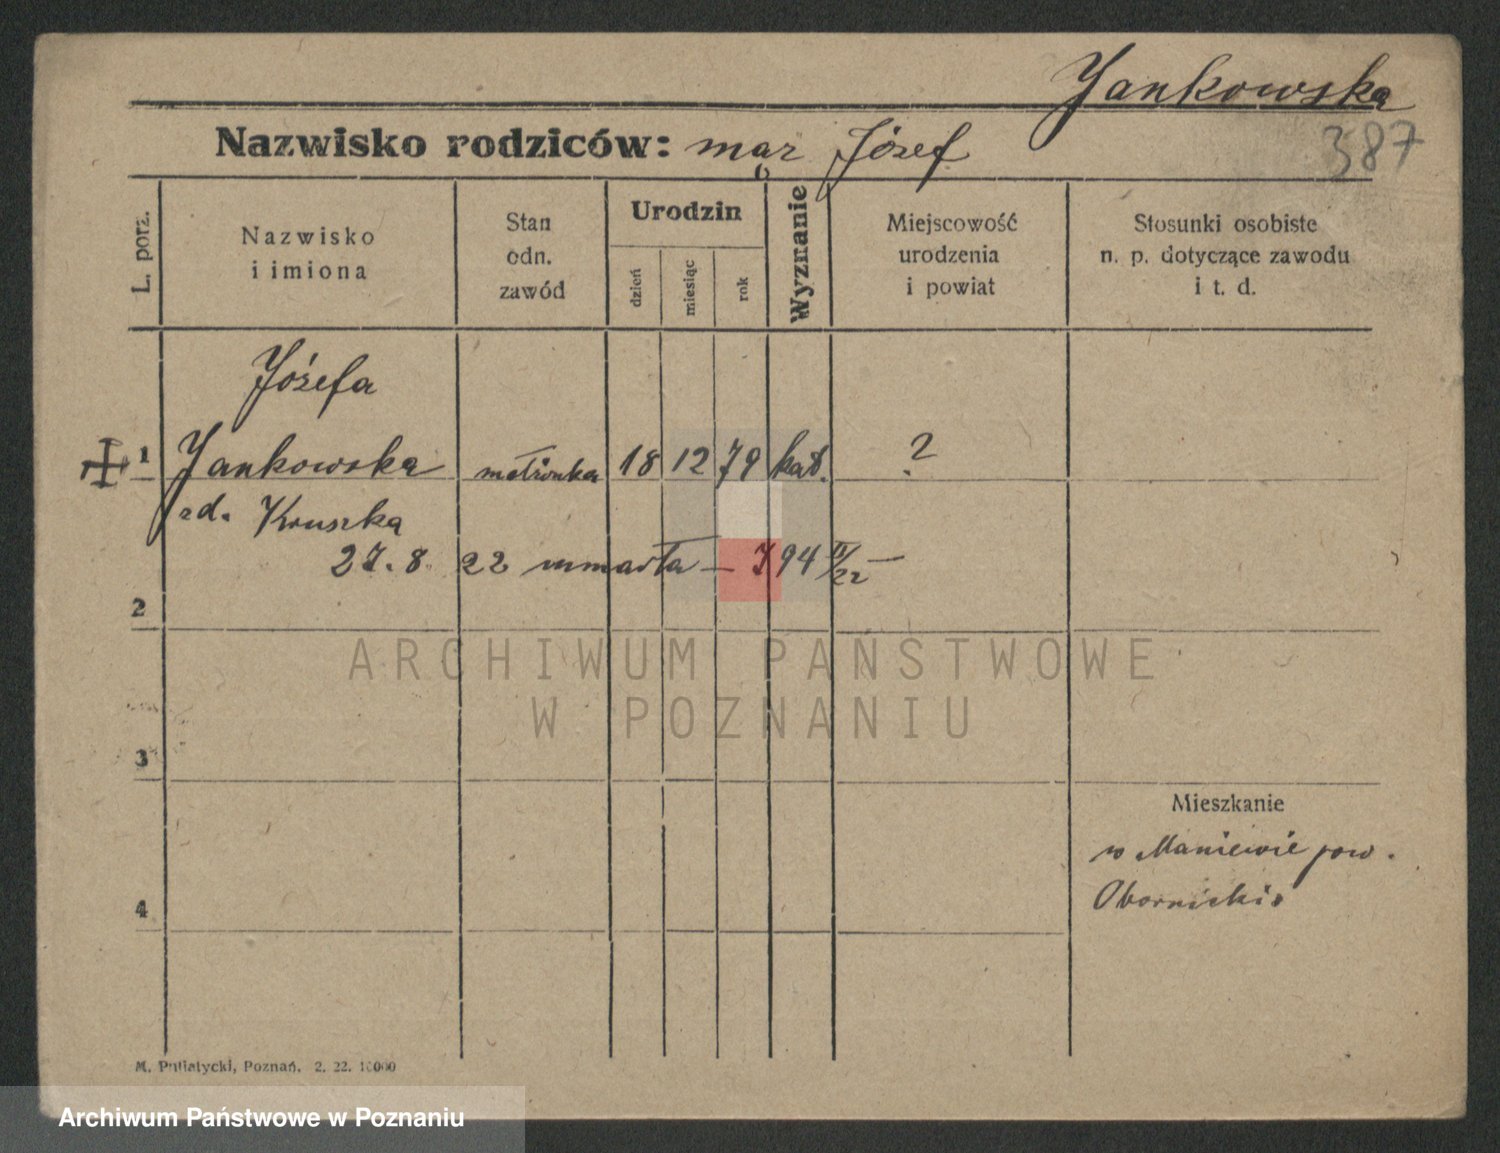 Jankowska
387
Nazwisko rodziców: mąż Józef
L. porz.
Nazwisko
i imiona
Stan
odn.
zawód
Urodzin
dzień
miesiąc
rok
Wyznanie
Miejscowość
urodzenia
i powiat
Stosunki osobiste
n. p. dotyczące zawodu
i t. d.
Józefa
1 Jankowska 18 12 79 kat. ?
zd. Kruszka
27.8 22 umarła — 794 II/22 —
2
ARCHIWUM PAŃSTWOWE
W POZNANIU
3
Mieszkanie
w Maniewie pow.
Obornickie
4
M. Putiatycki, Poznań. 2. 22. 10000
Archiwum Państwowe w Poznaniu